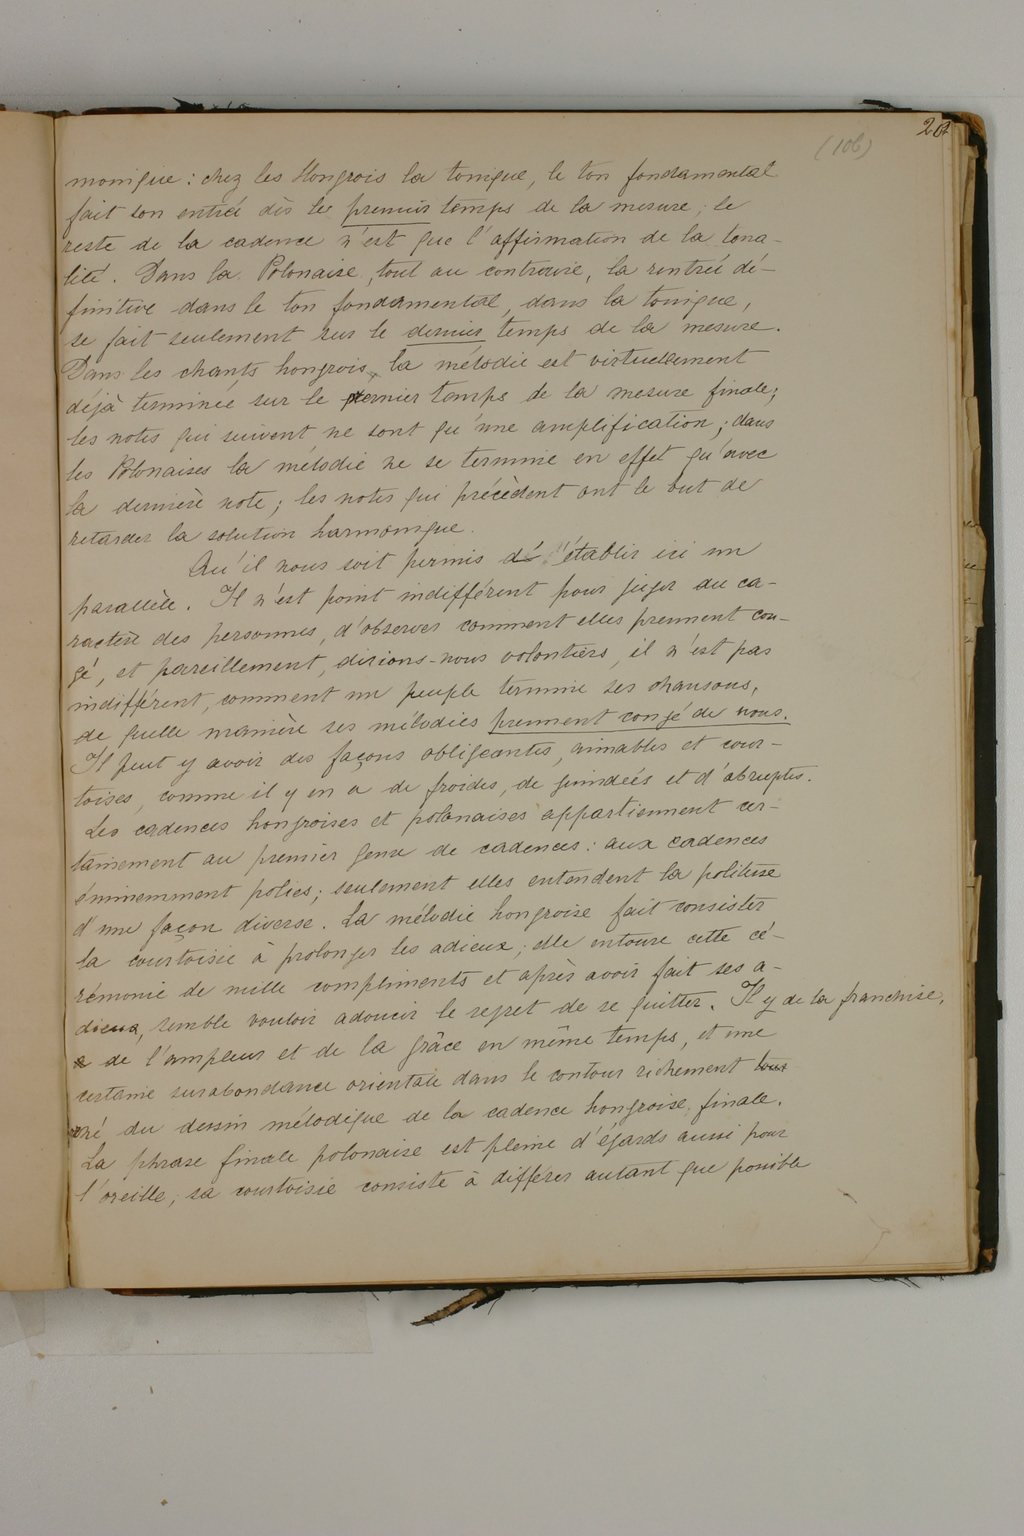 (106)
monique: chez les Hongrois la tonique, le ton fondamental
fait son entrée dès le premier temps de la mesure; le
reste de la cadence n'est que l'affirmation de la tona-
lité. Dans la Polonaise, tout au contraire, la rentrée dé-
finitive dans le ton fondamental, dans la tonique,
se fait seulement sur le dernier temps de la mesure.
Dans les chants hongrois, la mélodie est virtuellement
déjà terminée sur le premier temps de la mesure finale;
les notes qui suivent ne sont qu'une amplification; dans
les Polonaises la mélodie ne se termine en effet qu'avec
la dernière note; les notes qui précèdent ont le but de
retarder la solution harmonique.
Qu'il nous soit permis d'établir ici un
parallèle. Il n'est point indifférent pour juger du ca-
ractère des personnes, d'observer comment elles prennent con-
gé, et pareillement, dirions-nous volontiers, il n'est pas
indifférent, comment un peuple termine ses chansons,
de quelle manière ses mélodies prennent congé de nous.
Il peut y avoir des façons obligeantes, aimables et cour-
toises, comme il y en a de froides, de guindées et d'abruptes.
Les cadences hongroises et polonaises appartiennent cer-
tainement au premier genre de cadences: aux cadences
éminemment polies; seulement elles entendent la politesse
d'une façon diverse. La mélodie hongroise fait consister
la courtoisie à prolonger les adieux; elle entoure cette cé-
rémonie de mille compliments et après avoir fait ses a-
dieux, semble vouloir adoucir le regret de se quitter. Il y de la franchise,
de l'ampleur et de la grâce en même temps, et une
certaine surabondance orientale dans le contour richement
orné du dessin mélodique de la cadence hongroise finale.
La phrase finale polonaise est pleine d'égards aussi pour
l'oreille; sa courtoisie consiste à différer autant que possible